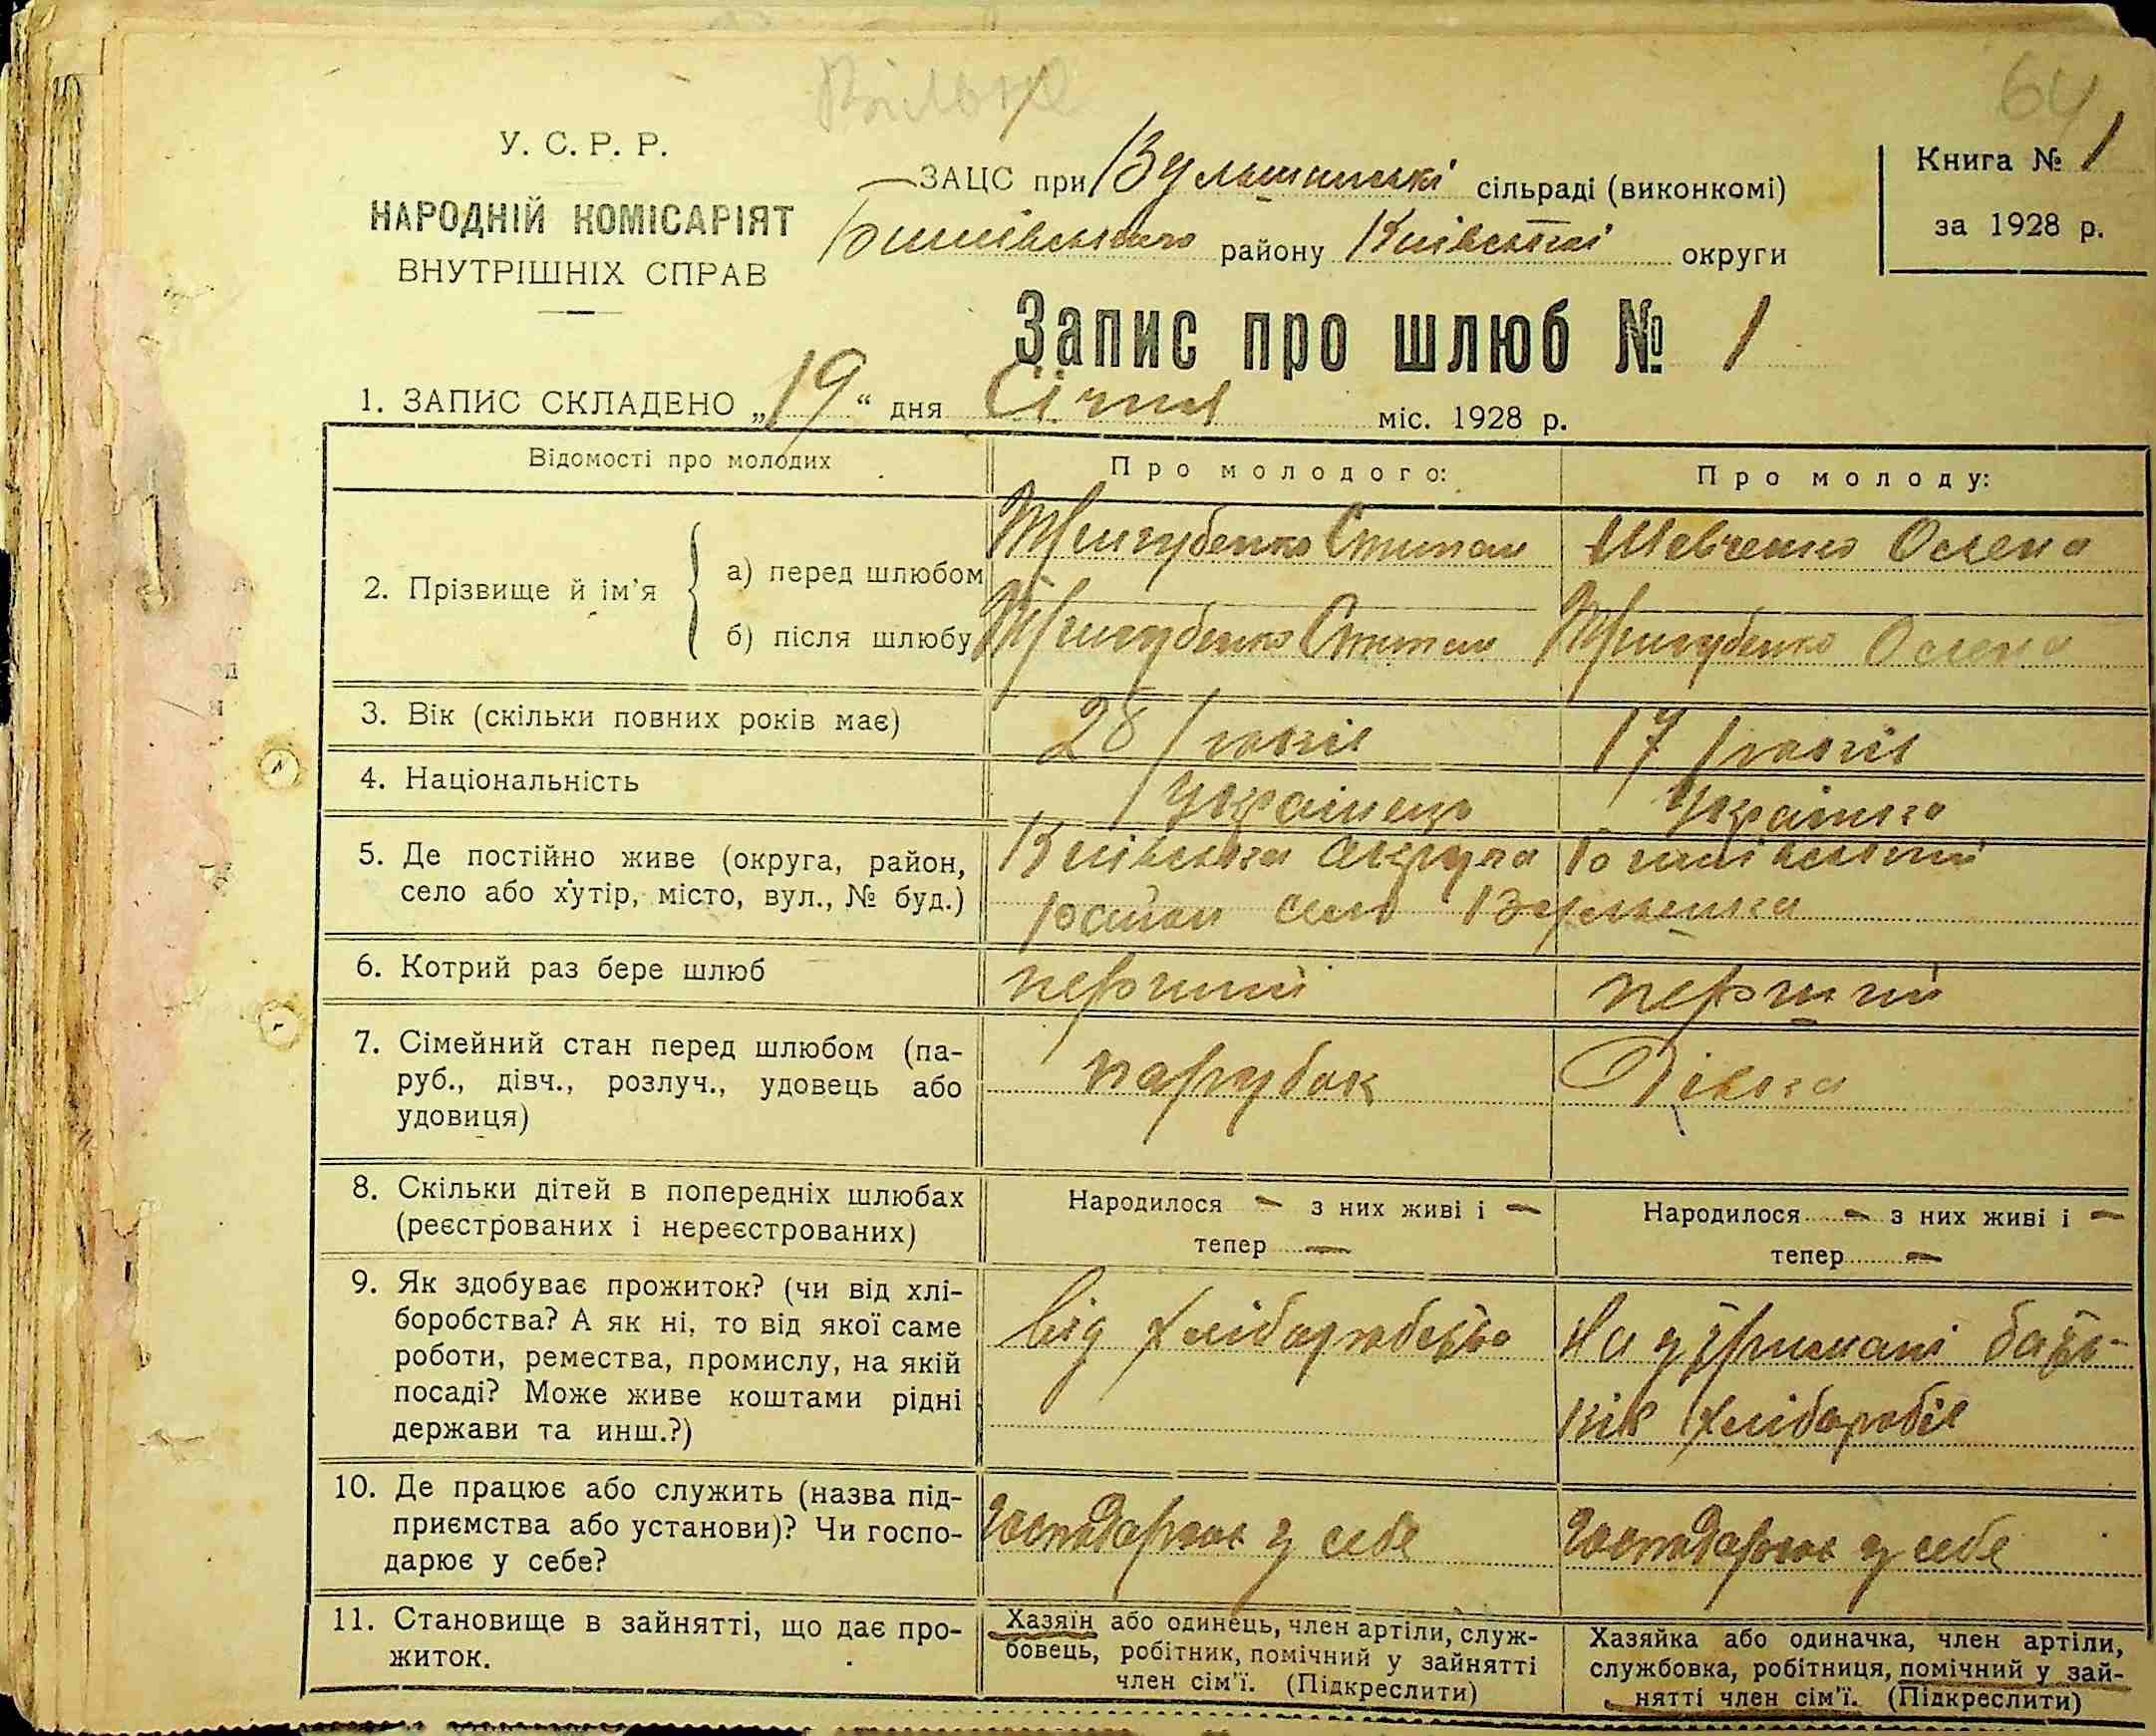 64
У. С. Р. Р.
НАРОДНІЙ КОМІСАРІЯТ
ВНУТРІШНІХ СПРАВ
ЗАЦС при сільраді (виконкомі)
району Київської округи
Книга № 1
за 1928 р.
Запис про шлюб № 1
1. ЗАПИС СКЛАДЕНО „19“ дня Січня міс. 1928 р.
Відомості про молодих
Про молодого:
Про молоду:
2. Прізвище й ім'я
а) перед шлюбом
Тригубенко Степан
Шевченко Олена
б) після шлюбу
Тригубенко Степан
Тригубенко Олена
3. Вік (скільки повних років має)
28 років
17 років
4. Національність
Українець
Українка
5. Де постійно живе (округа, район,
село або хутір, місто, вул., № буд.)
Київська округа
район село
6. Котрий раз бере шлюб
перший
перший
7. Сімейний стан перед шлюбом (па-
руб., дівч., розлуч., удовець або
удовиця)
парубок
Дівка
8. Скільки дітей в попередніх шлюбах
(реєстрованих і нереєстрованих)
Народилося - з них живі і -
тепер -
Народилося - з них живі і -
тепер -
9. Як здобуває прожиток? (чи від хлі-
боробства? А як ні, то від якої саме
роботи, ремества, промислу, на якій
посаді? Може живе коштами рідні
держави та инш.?)
від хліборобства
На утримані бать-
ків хліборобів
10. Де працює або служить (назва під-
приємства або установи)? Чи госпо-
дарює у себе?
господарює у себе
господарює у себе
11. Становище в зайнятті, що дає про-
житок.
Хазяїн або одинець, член артіли, служ-
бовець, робітник, помічний у зайнятті
член сім'ї. (Підкреслити)
Хазяйка або одиначка, член артіли,
службовка, робітниця, помічний у зай-
нятті член сім'ї. (Підкреслити)